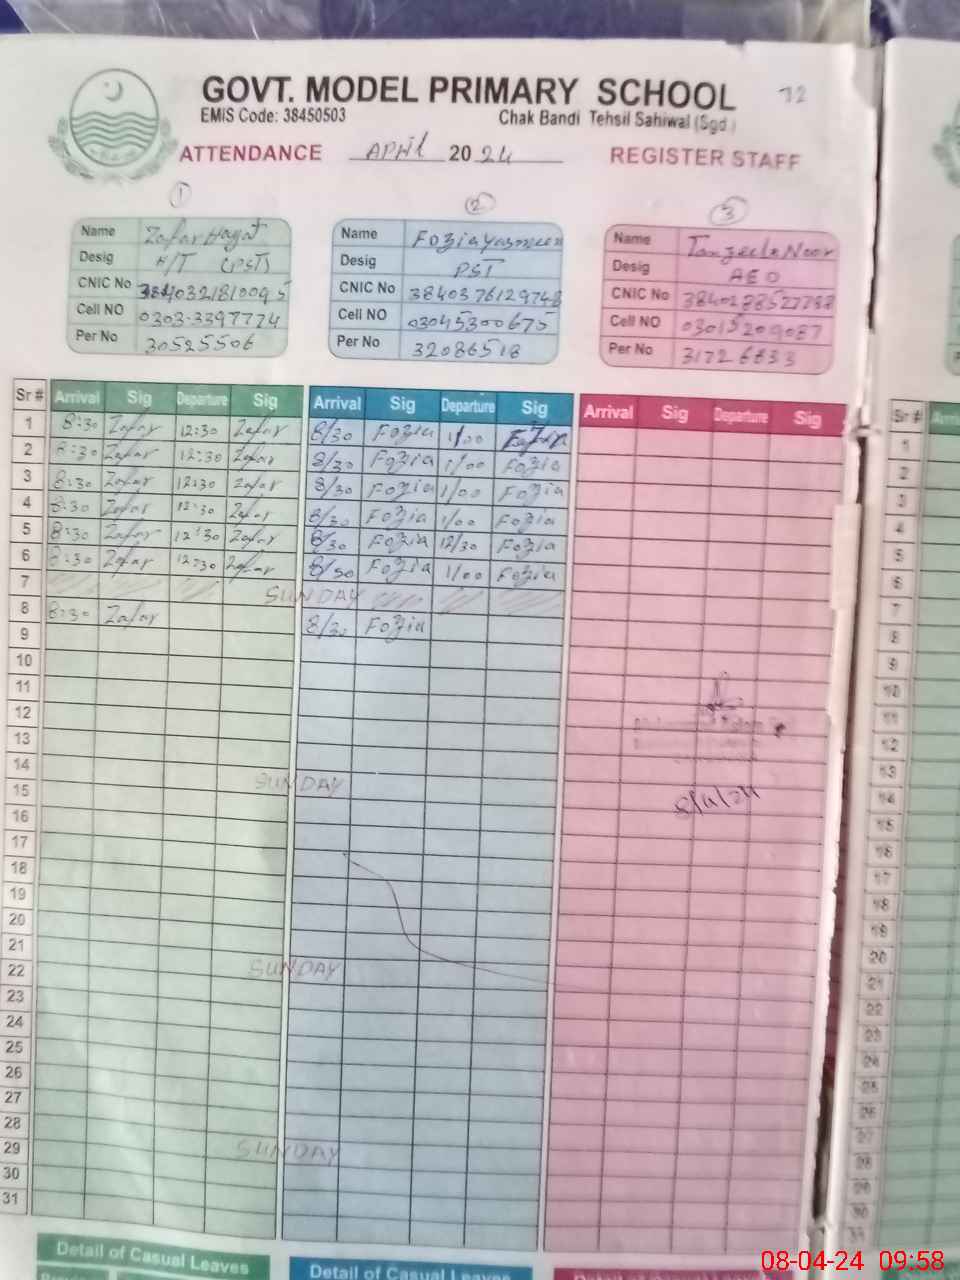 GOVT. MODEL PRIMARY SCHOOL 72
EMIS Code: 38450503 Chak Bandi Tehsil Sahiwal (Sgd)
ATTENDANCE April 2024 REGISTER STAFF
1 2 3
Name Zafar Hayat Name Fozia Yasmeen Name Tanzeela Noor
Desig H/T (PST) Desig PST Desig AEO
CNIC No 3840321810095 CNIC No 3840376129748 CNIC No 3840288527788
Cell NO 0303-3397774 Cell NO 03045300675 Cell NO 03015209087
Per No 30525506 Per No 32086518 Per No 31726833
Sr # Arrival Sig Departure Sig Arrival Sig Departure Sig Arrival Sig Departure Sig Sr #
1 8:30 Zafar 12:30 Zafar 8/30 Fozia 1/00 1
2 8:30 Zafar 12:30 Zafar 8/30 Fozia 1/00 Fozia 2
3 8:30 Zafar 12:30 Zafar 8/30 Fozia 1/00 Fozia 3
4 8:30 Zafar 12:30 Zafar 8/30 Fozia 1/00 Fozia 4
5 8:30 Zafar 12:30 Zafar 8/30 Fozia 12/30 Fozia 5
6 8:30 Zafar 12:30 Zafar 8/30 Fozia 1/00 Fozia 6
7 SUNDAY 7
8 8:30 Zafar 8/30 Fozia 8
9 9
10 10
11 11
12 12
13 13
14 SUNDAY 14
15 15
16 16
17 17
18 18
19 19
20 20
21 SUNDAY 21
22 22
23 23
24 24
25 25
26 26
27 27
28 SUNDAY 28
29 29
30 30
31 31
8/4/24
Detail of Casual Leaves Detail of Casual Leaves
08-04-24 09:58